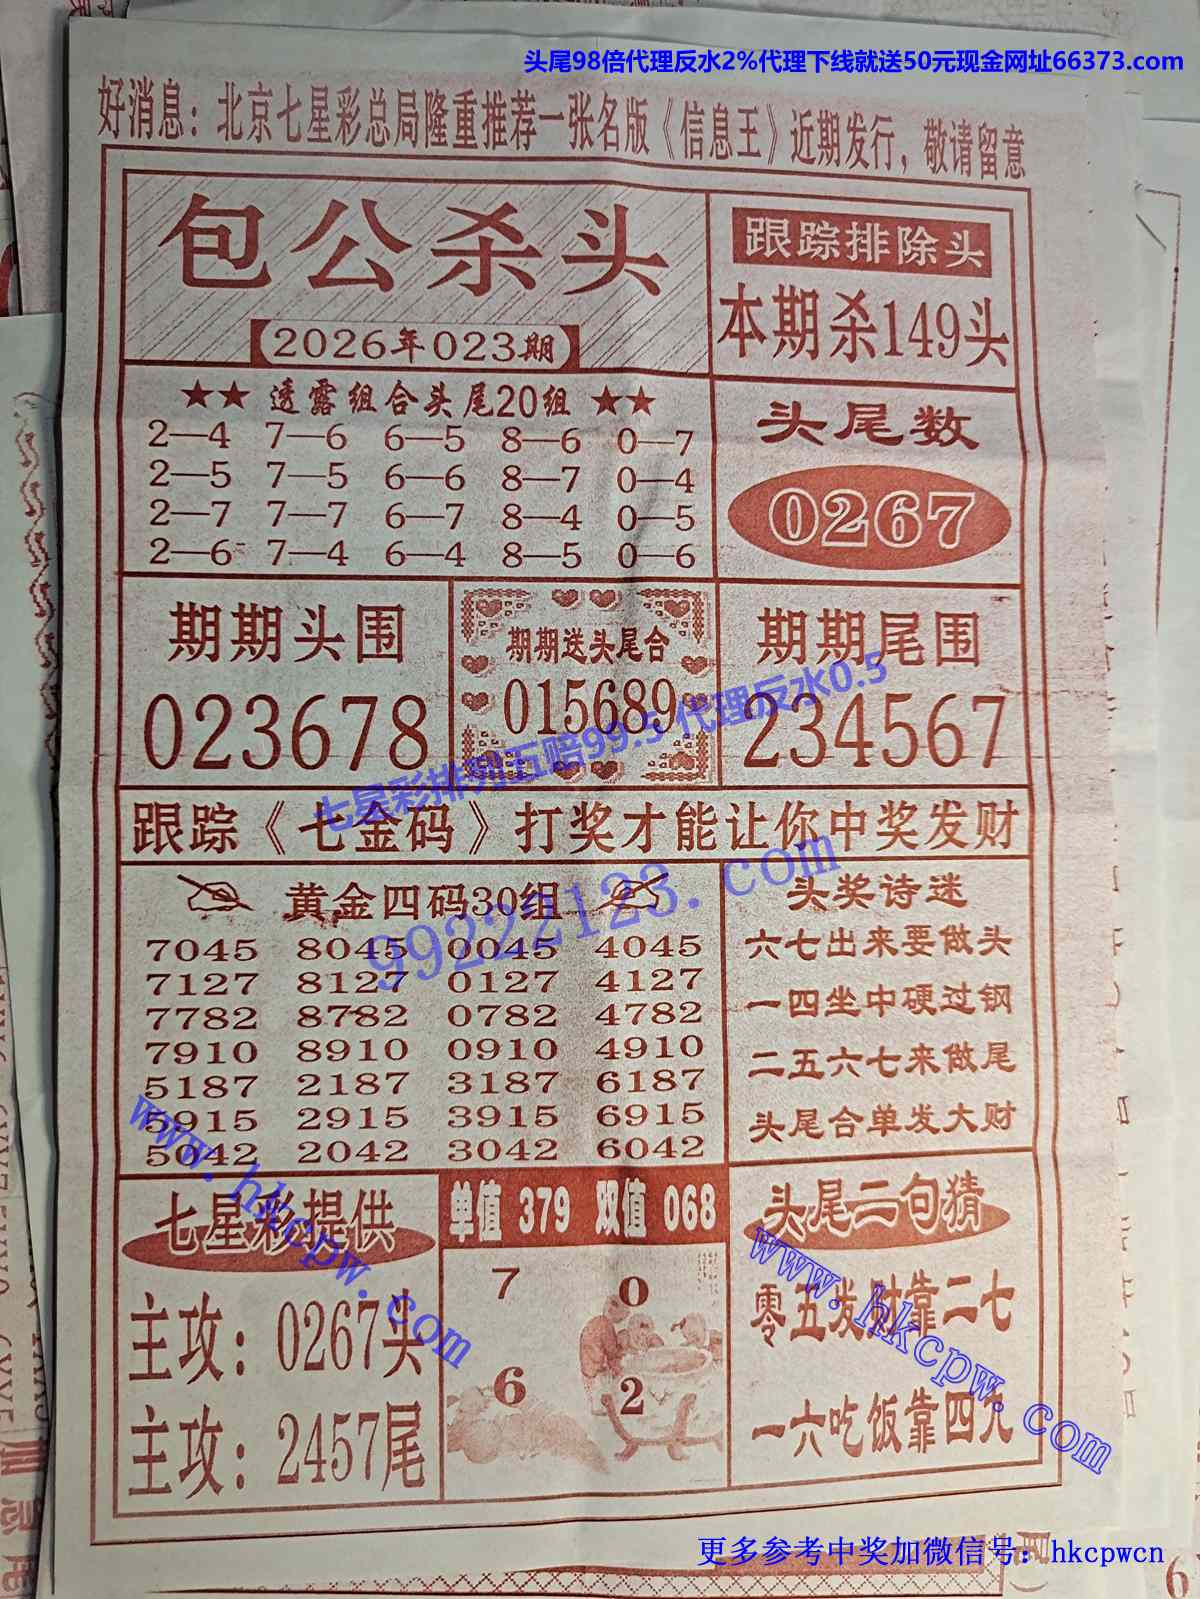 头尾98倍代理反水2%代理下线就送50元现金网址66373.com
好消息：北京七星彩总局隆重推荐一张名版《信息王》近期发行，敬请留意
包公杀头
【2026年023期】
跟踪排除头
本期杀149头
★★ 透露组合头尾20组 ★★
2—4 7—6 6—5 8—6 0—7
2—5 7—5 6—6 8—7 0—4
2—7 7—7 6—7 8—4 0—5
2—6 7—4 6—4 8—5 0—6
头尾数
0267
期期头围
023678
期期送头尾合
015689
期期尾围
234567
七星彩排列五赔99.5 代理反水0.5
跟踪《七金码》打奖才能让你中奖发财
99222123.com
黄金四码30组
7045 8045 0045 4045
7127 8127 0127 4127
7782 8782 0782 4782
7910 8910 0910 4910
5187 2187 3187 6187
5915 2915 3915 6915
5042 2042 3042 6042
头奖诗迷
六七出来要做头
一四坐中硬过钢
二五六七来做尾
头尾合单发大财
www.hkcpw.com
七星彩提供
主攻：0267头
主攻：2457尾
单值 379 双值 068
7 0
6 2
头尾二句猜
零五发财靠二七
一六吃饭靠四九
www.hkcpw.com
更多参考中奖加微信号：hkcpwcn